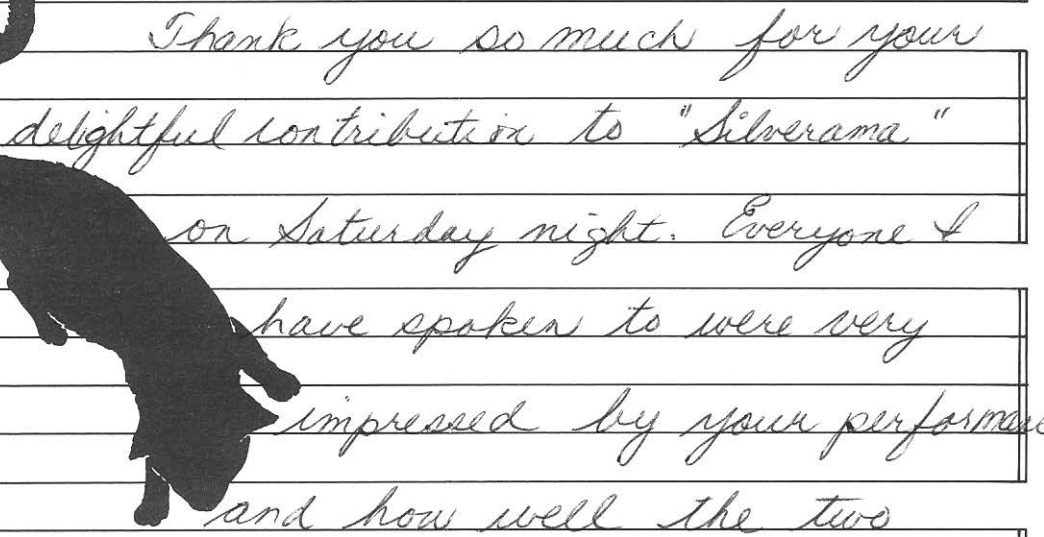 Thank you so much for your
delightful contribution to "Silverama"
on Saturday night. Everyone I
have spoken to were very
impressed by your performanc
and how well the two